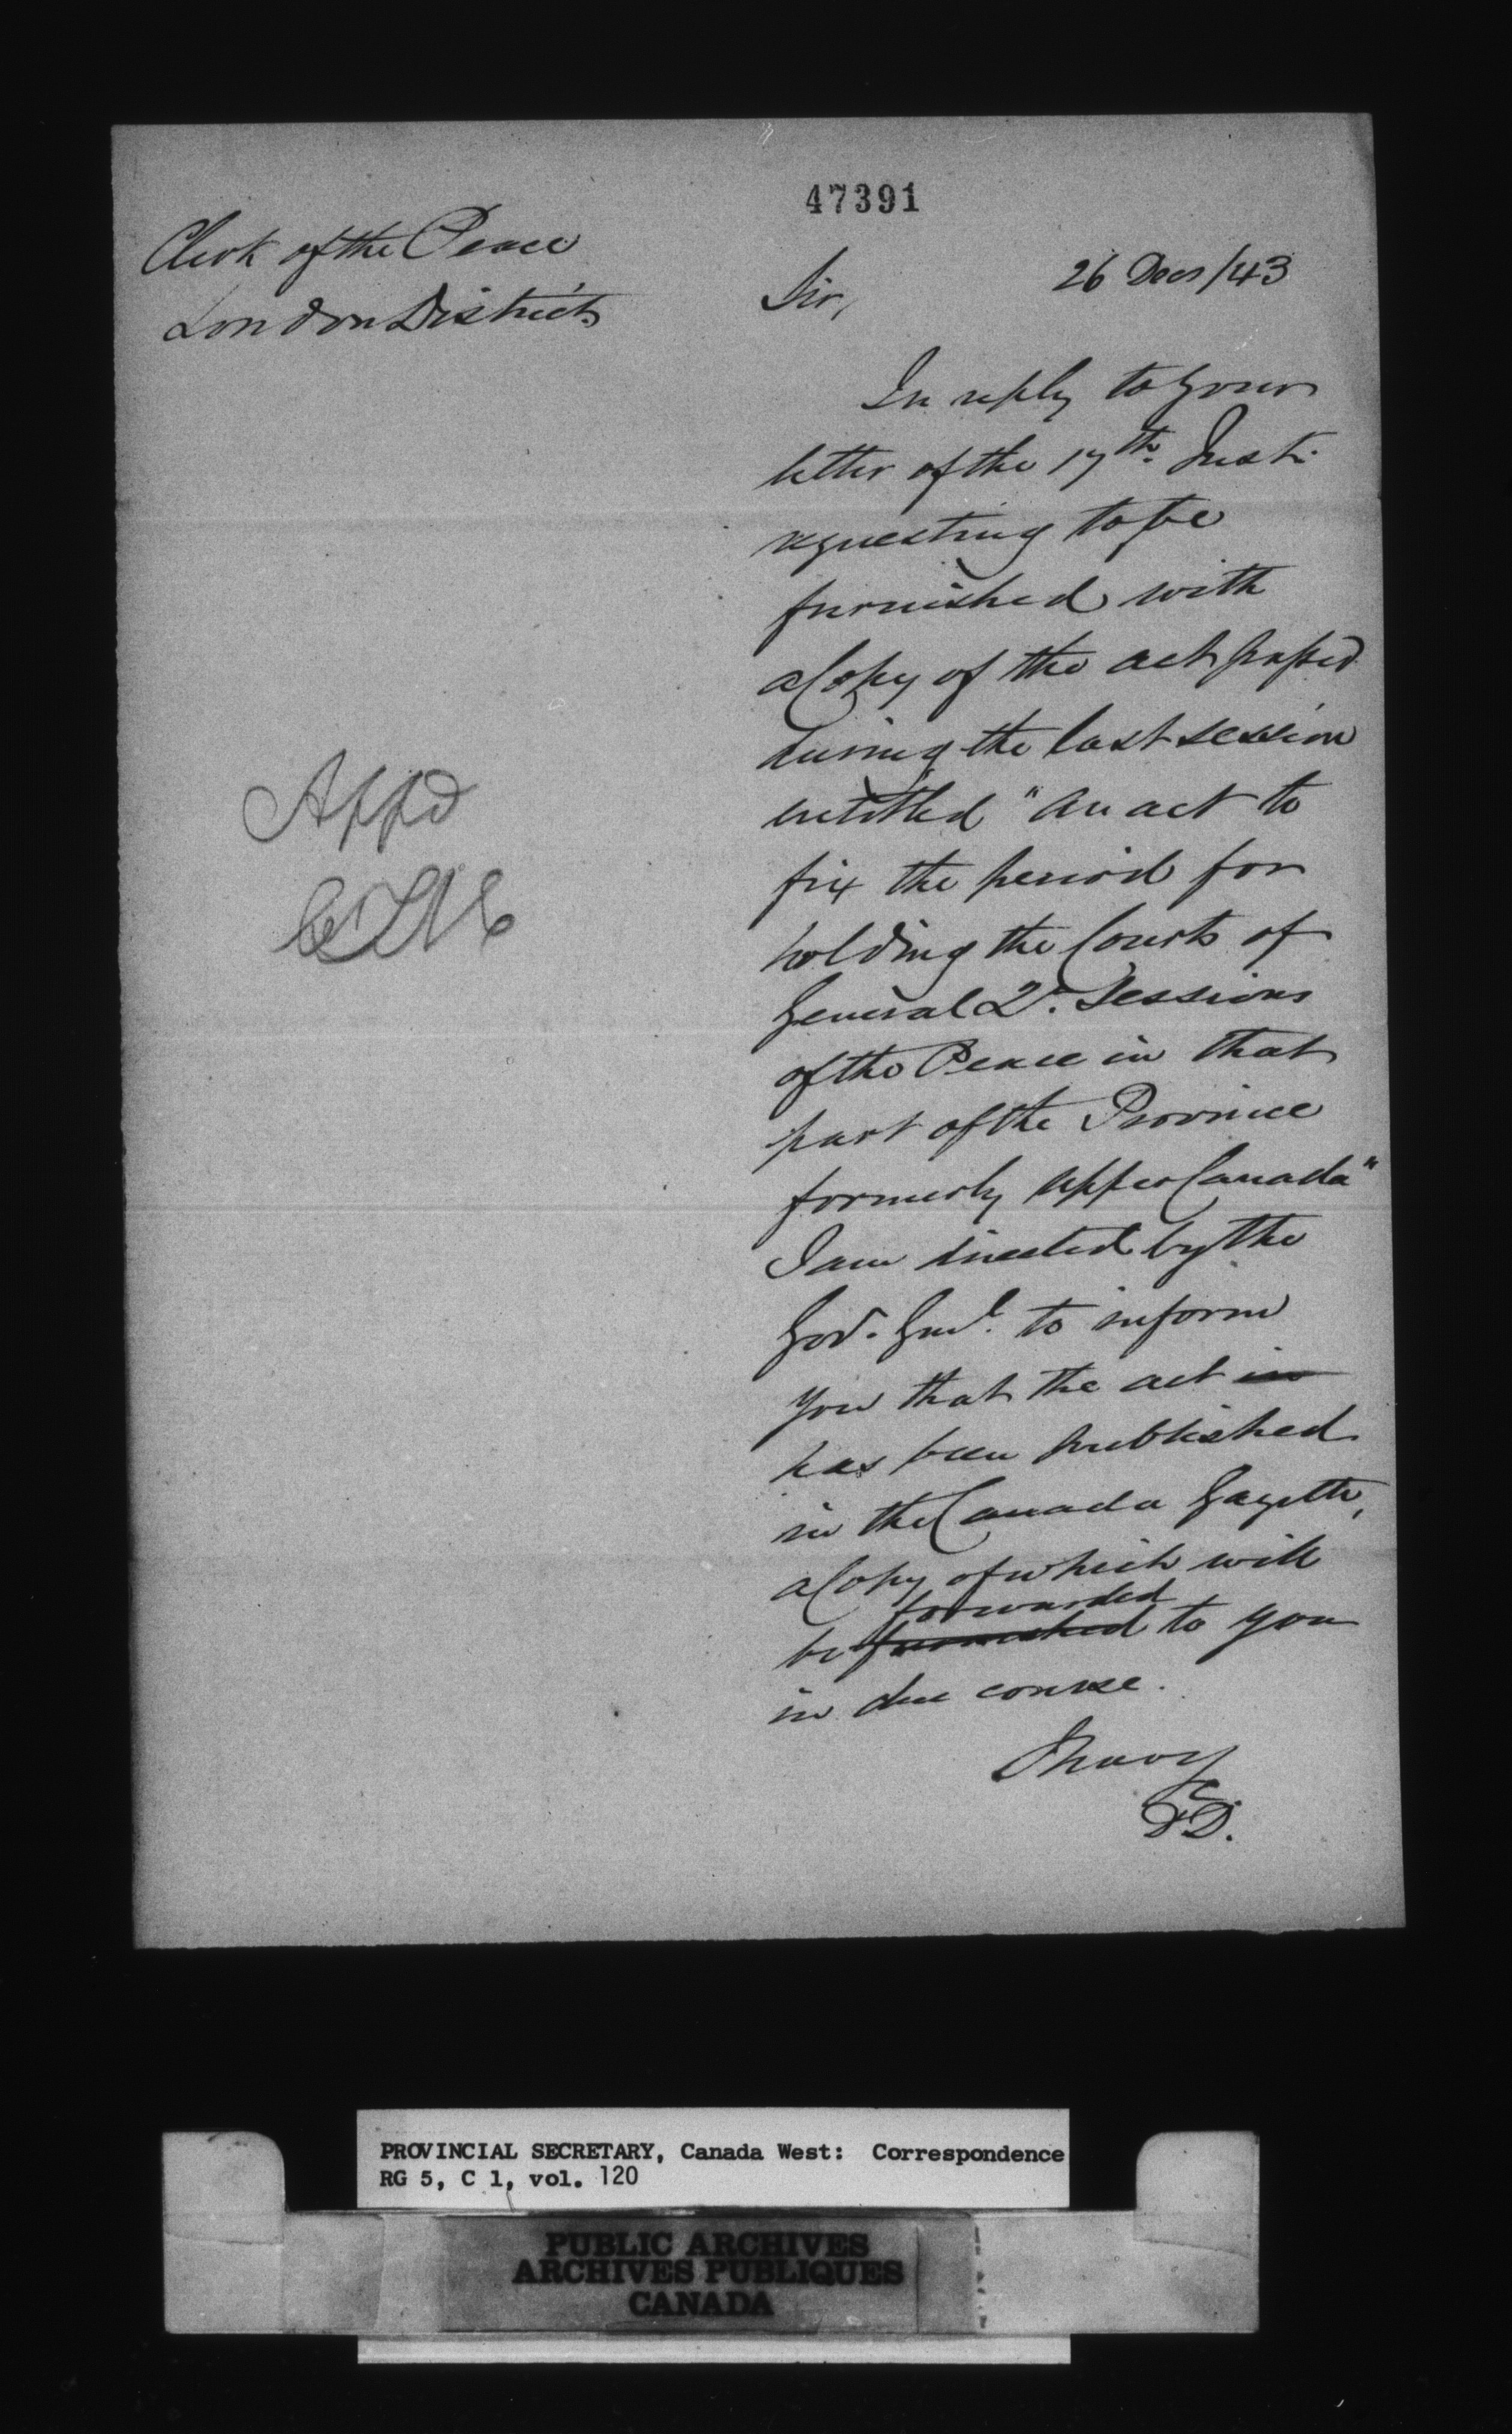 47391
Clerk of the Peace
London District
26 Decr/43
Sir,
In reply to your
letter of the 17th. Inst.
requesting to be
furnished with
a Copy of the act passed
during the last session
entitled "An act to
fix the period for
holding the Courts of
General Qr. Sessions
of the Peace in that
part of the Province
formerly Upper Canada"
I am directed by the
Govr. Genl. to inform
you that the act in
has been published
in the Canada Gazette,
a Copy of which will
forwarded
be furnished to you
in due course.
I have &c
Appd
PROVINCIAL SECRETARY, Canada West: Correspondence
RG 5, C 1, vol. 120
PUBLIC ARCHIVES
ARCHIVES PUBLIQUES
CANADA